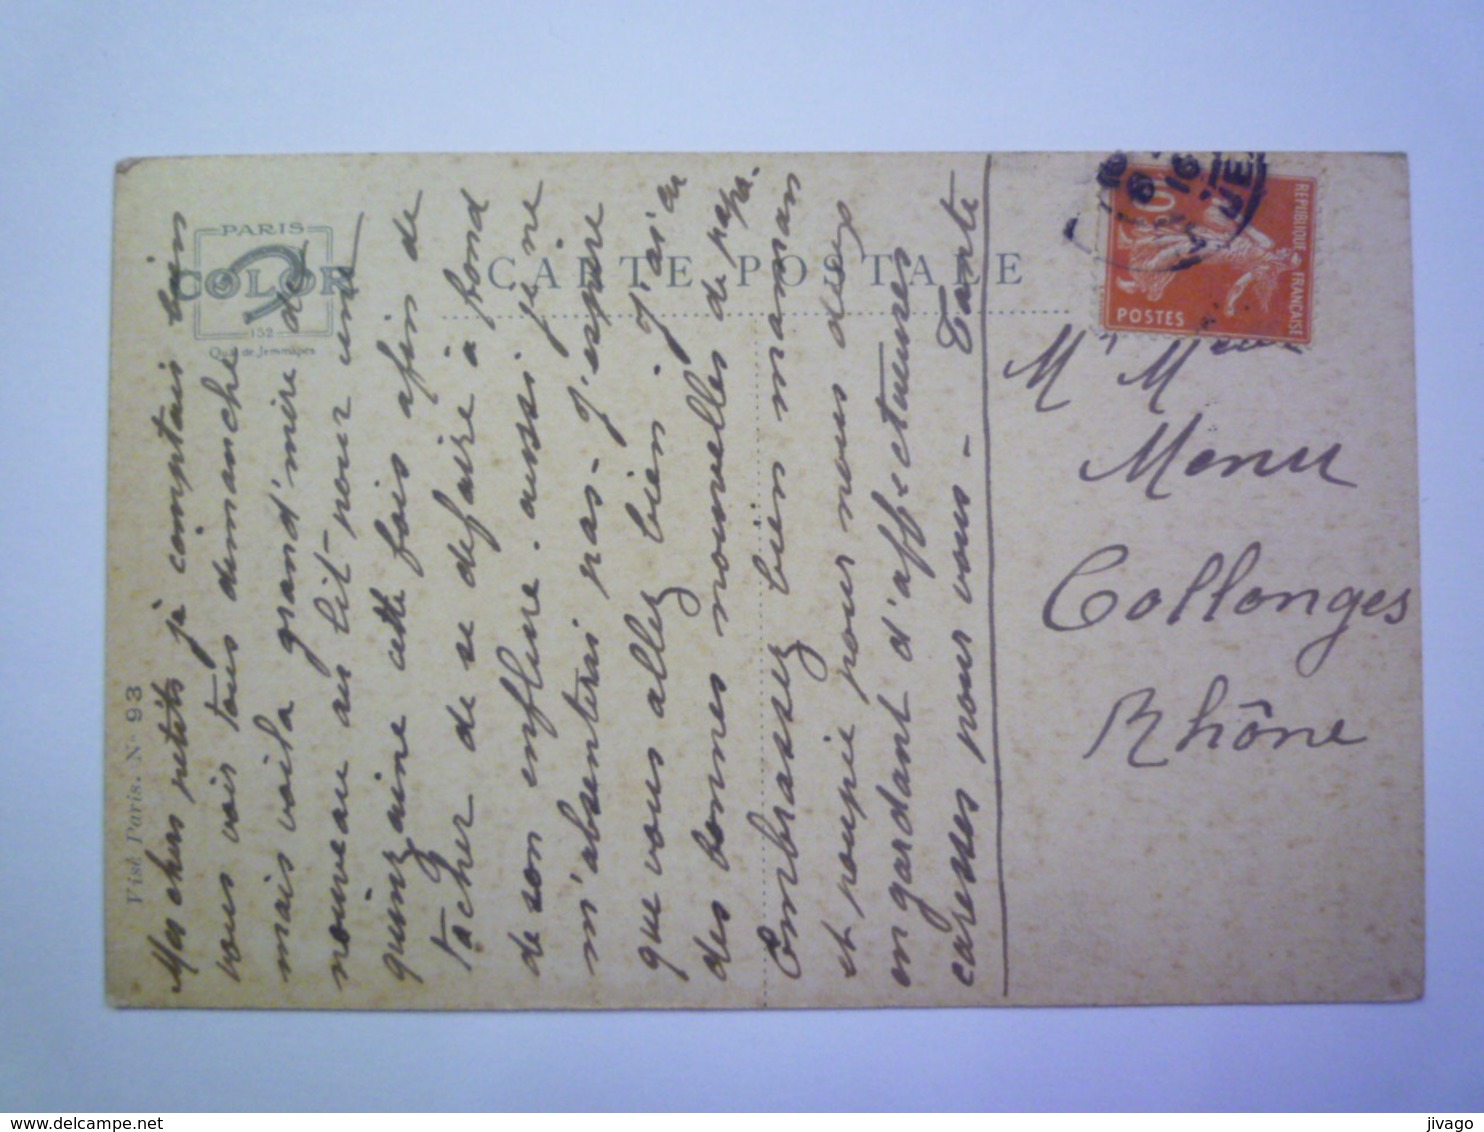 Mes chers petits je comptais bien
vous voir tous dimanche
mais voila grand'mère de
nouveau au lit - pour une
quinzaine cette fois afin de
tacher de se defaire à fond
de son enflure. aussi je ne
m'absenterai pas - J'espère
que vous allez bien. J'ai eu
des bonnes nouvelles de papa.
Embrassez bien maman
et poupée pour nous deux
en gardant d'affectueuses
caresses pour vous - Tante
PARIS
COLOR
152
Quai de Jemmapes
Visé Paris. N° 93
CARTE POSTALE
RÉPUBLIQUE FRANÇAISE
POSTES
10
16
Mr Mme
Menu
Collonges
Rhône
delcampe.net
jivago